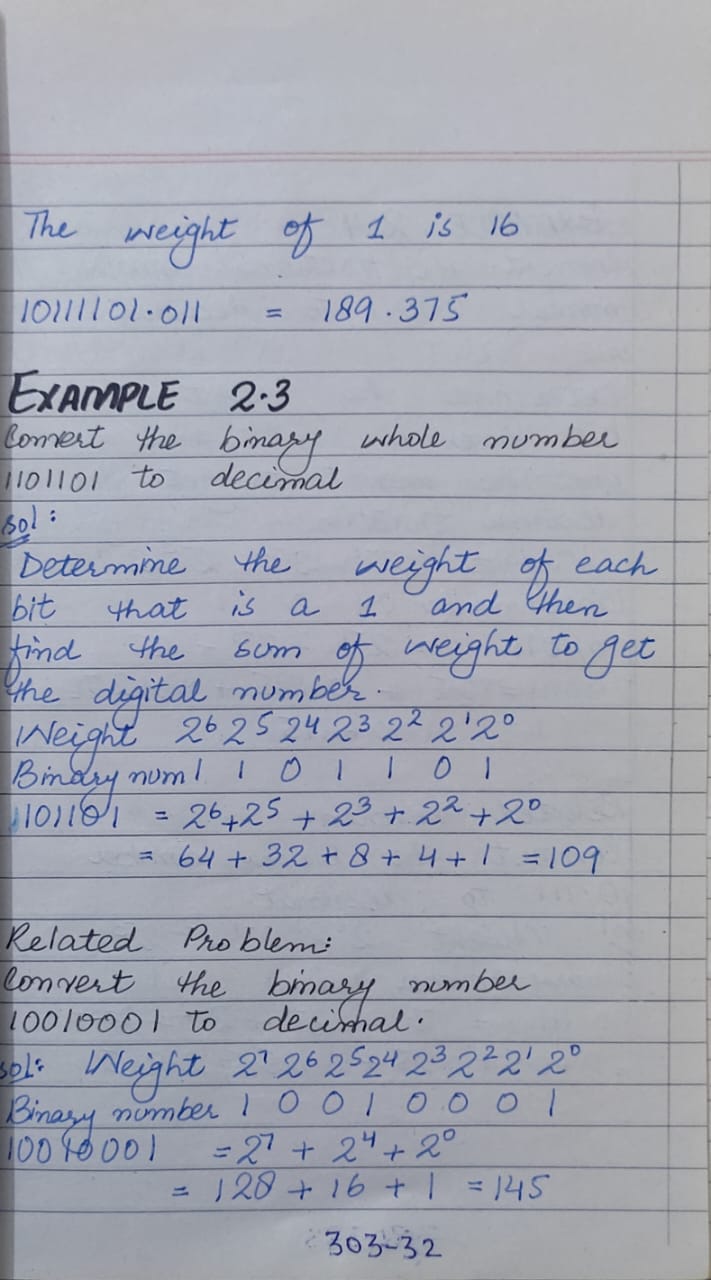 The weight of 1 is 16
10111101.011 = 189.375
EXAMPLE 2.3
Convert the binary whole number
1101101 to decimal
sol:
Determine the weight of each
bit that is a 1 and then
find the sum of weight to get
the digital number.
Weight 2⁶ 2⁵ 2⁴ 2³ 2² 2¹ 2⁰
Binary num 1 1 0 1 1 0 1
1101101 = 2⁶ + 2⁵ + 2³ + 2² + 2⁰
= 64 + 32 + 8 + 4 + 1 = 109
Related Problem:
Convert the binary number
10010001 to decimal.
sol: Weight 2⁷ 2⁶ 2⁵ 2⁴ 2³ 2² 2¹ 2⁰
Binary number 1 0 0 1 0 0 0 1
10010001 = 2⁷ + 2⁴ + 2⁰
= 128 + 16 + 1 = 145
303-32